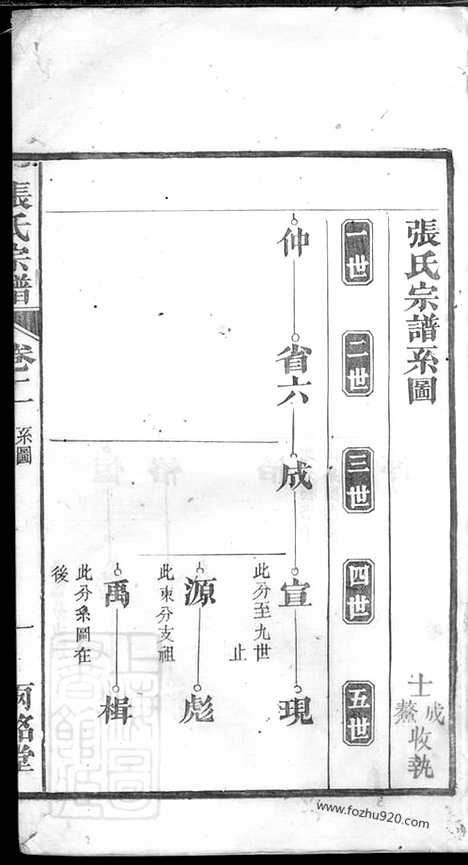 張氏宗譜系圖
士成鰲收執
一世
二世
三世
四世
五世
仲
省六
成
宣
現
此分至九世止
源
彪
此東分支祖
禹
楫
此分系圖在後
張氏宗譜
卷二
系圖
一
百忍堂
www.fozhu920.com